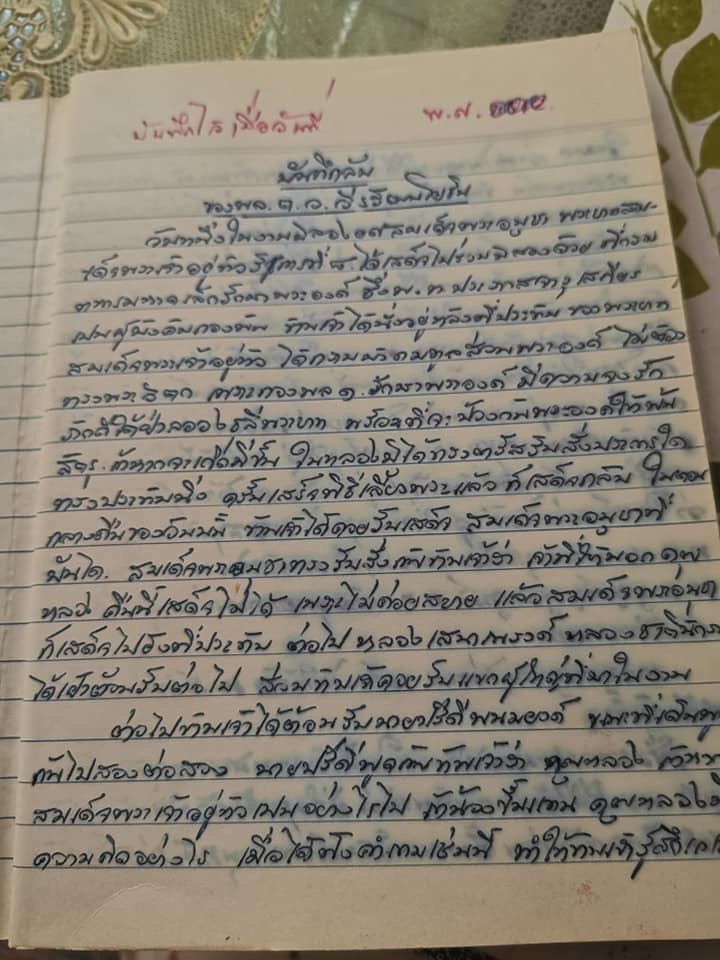 บันทึกไว้เมื่อวันที่ พ.ศ.
บันทึกลับ
ของพล.ต.ว.
วันหนึ่งในงานฉลอง สมเด็จพระอนุชา
เด็จพระเจ้าอยู่หัวรัชกาลที่ ๘ ได้เสด็จไปร่วมฉลองด้วย ที่กรม
ทหารมหาดเล็กรักษาพระองค์ ซึ่งพ.ท. ประพาส
เป็นผู้บังคับกองพัน ข้าพเจ้าได้นั่งอยู่หลังที่ประทับ ของพระบาท
สมเด็จพระเจ้าอยู่หัว ได้กราบบังคมทูล พระองค์ ไม่ต้อง
ทรงพระวิตก เพราะกองพล ๑ รักษาพระองค์ มีความจงรัก
ภักดีใต้ฝ่าละอองธุลีพระบาท พร้อมที่จะป้องกันพระองค์ให้พ้น
ศัตรู ถ้าหากจะเกิดมีขึ้น ในหลวงมิได้ทรงตรัสรับสั่งประการใด
ทรงประทับนิ่ง ครั้นเสร็จพิธีเลี้ยงพระแล้วก็เสด็จกลับ ในตอน
กลางคืนของวันนั้น ข้าพเจ้าได้คอยรับเสด็จ สมเด็จพระอนุชาที่
บันได สมเด็จพระอนุชาทรงรับสั่งกับข้าพเจ้าว่า เจ้าพี่ให้บอกคุณ
หลวง คืนนี้เสด็จไม่ได้ เพราะไม่ค่อยสบาย แล้วสมเด็จพระอนุชา
ก็เสด็จไปยังที่ประทับ ต่อไป หลวงเสนาณรงค์ หลวงชาตินักรบ
ได้เฝ้าต้อนรับต่อไป ส่วนข้าพเจ้าคอยรับแขกผู้ใหญ่ที่มาในงาน
ต่อไปข้าพเจ้าได้ต้อนรับนายปรีดีพนมยงค์ ขณะที่เดินคุย
กันไปสองต่อสอง นายปรีดีพูดกับข้าพเจ้าว่า คุณหลวง ถ้าหาก
สมเด็จพระเจ้าอยู่หัวเป็นอย่างไรไป ถ้าน้องขึ้นแทน คุณหลวงมี
ความคิดอย่างไร เมื่อได้ฟังคำถามเช่นนี้ ทำให้ข้าพเจ้ารู้สึก